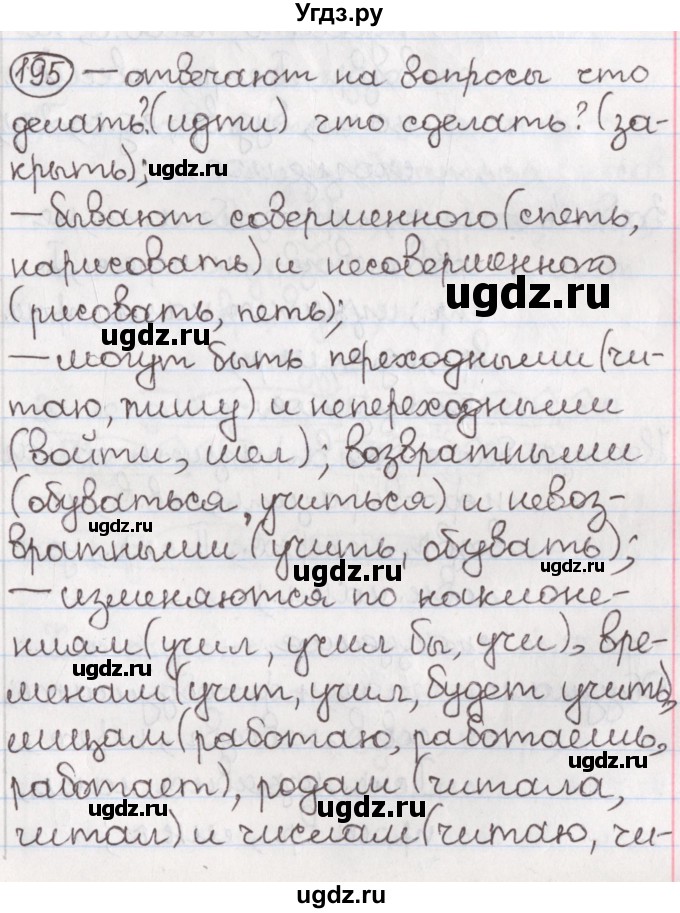 Угдз.ру
195 – отвечают на вопросы что
делать? (идти) что сделать? (за-
крыть);
ugdz.ru
– бывают совершенного (спеть,
нарисовать) и несовершенного
ugdz.ru
(рисовать, петь);
ugdz.ru
– могут быть переходными (чи-
таю, пишу) и непереходными
(войти, шел), возвратными
ugdz.ru
(обуваться, учиться) и невоз-
ugdz.ru
вратными (учить, обувать);
ugdz.ru
ugdz.ru
– изменяются по наклоне-
ниям (учил, учил бы, учи), вре-
ugdz.ru
менам (учит, учил, будет учить),
лицам (работаю, работаешь,
работает), родам (читала,
ugdz.ru
ugdz.ru
читал) и числам (читаю, чи-
ugdz.ru